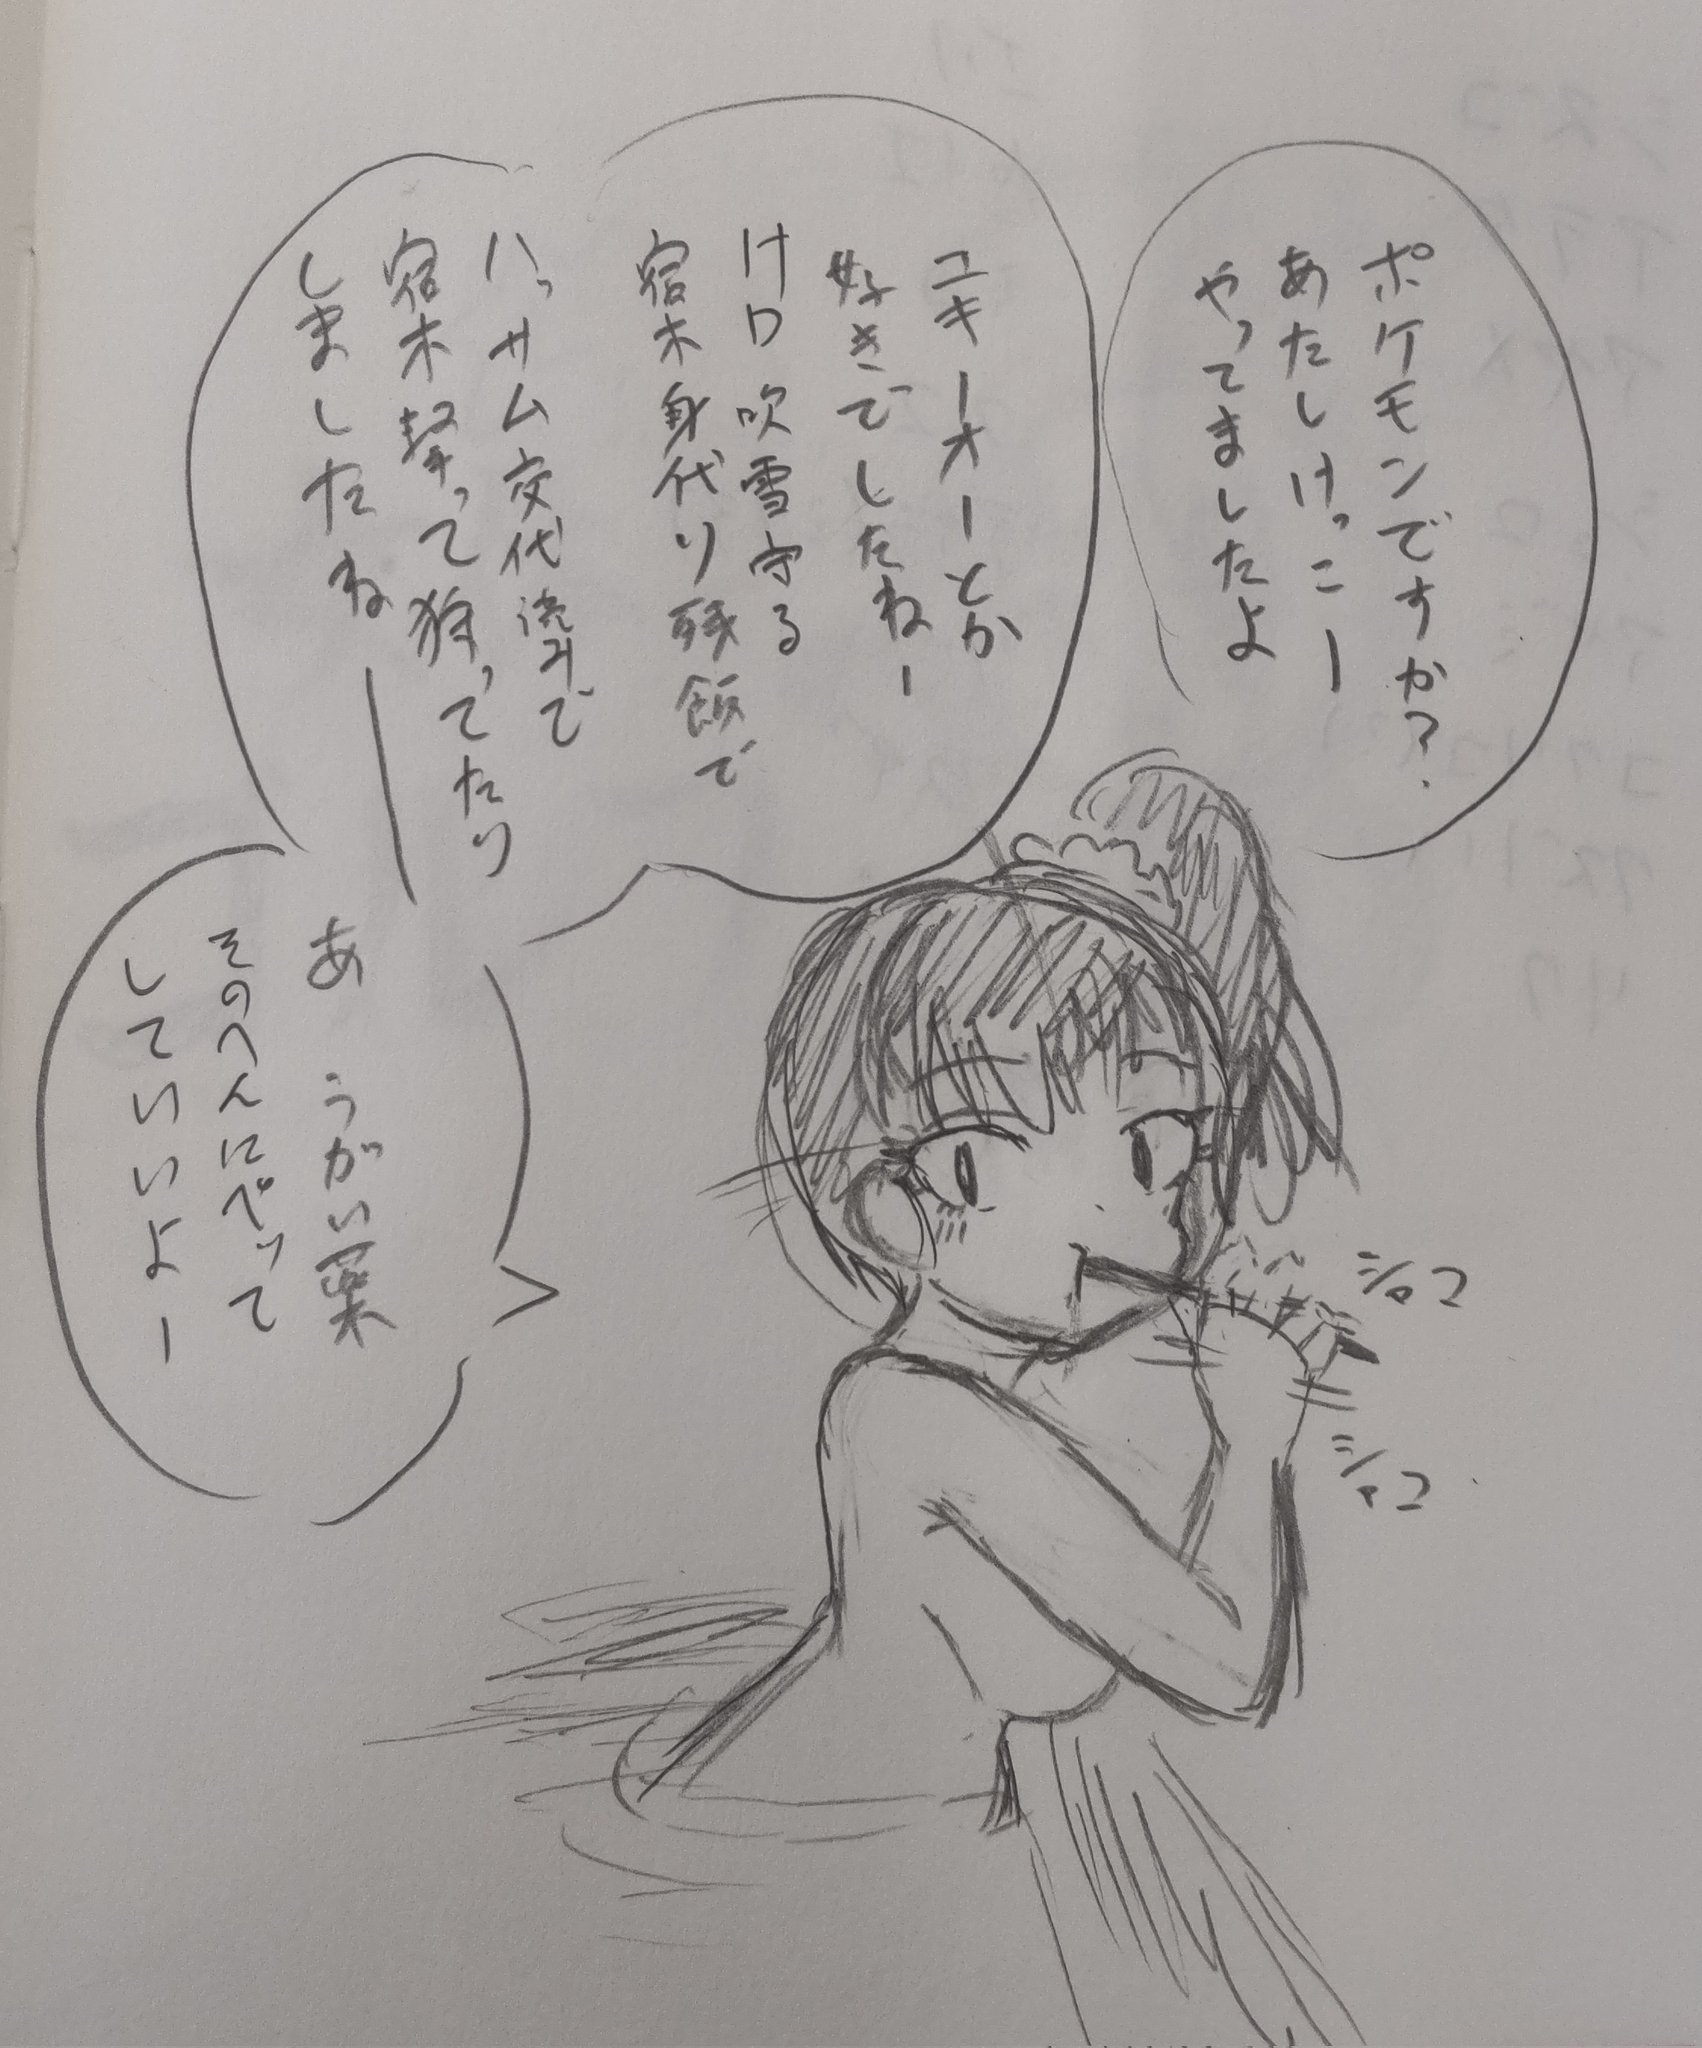 ポケモンですか?
あたしけっこー
やってましたよ
ユキノオーとか
好きでしたねー
けロ 吹雪守る
宿木身代り残飯で
ハッサム交代読みで
宿木撃って狩ってたり
しましたねー
あ うがい薬
そのへんにぺって
していいよー
シャコ
シャコ